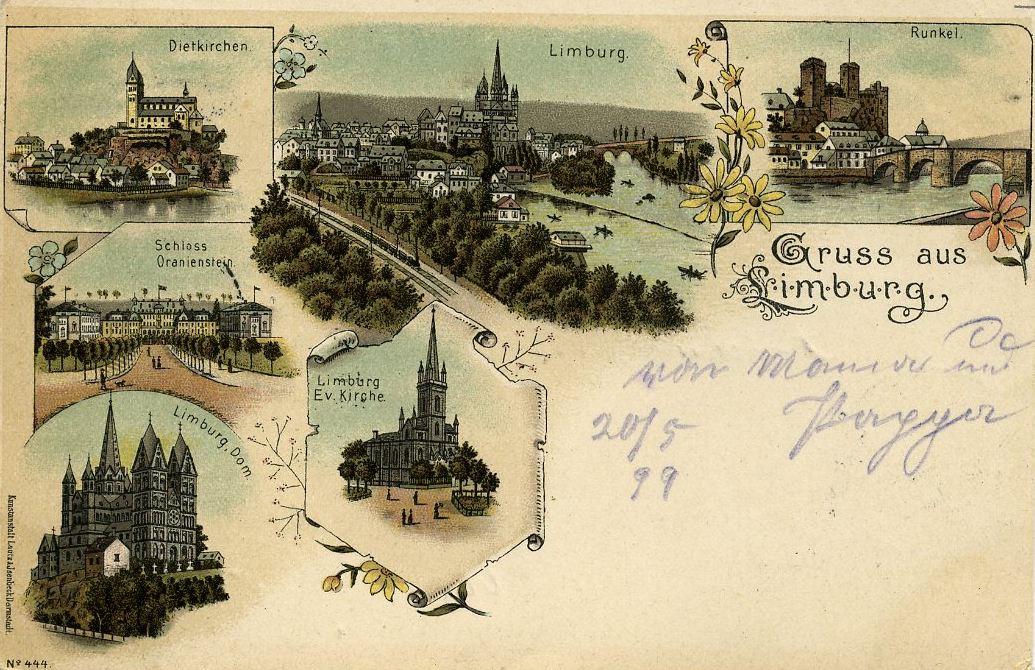 Dietkirchen.
Limburg.
Runkel.
Schloss
Oranienstein.
Gruss aus
Limburg.
Limburg
Ev. Kirche.
Limburg, Dom.
von Mama und
20/5
99
Kunstanstalt Lautz & Isenbeck Darmstadt.
No 444.